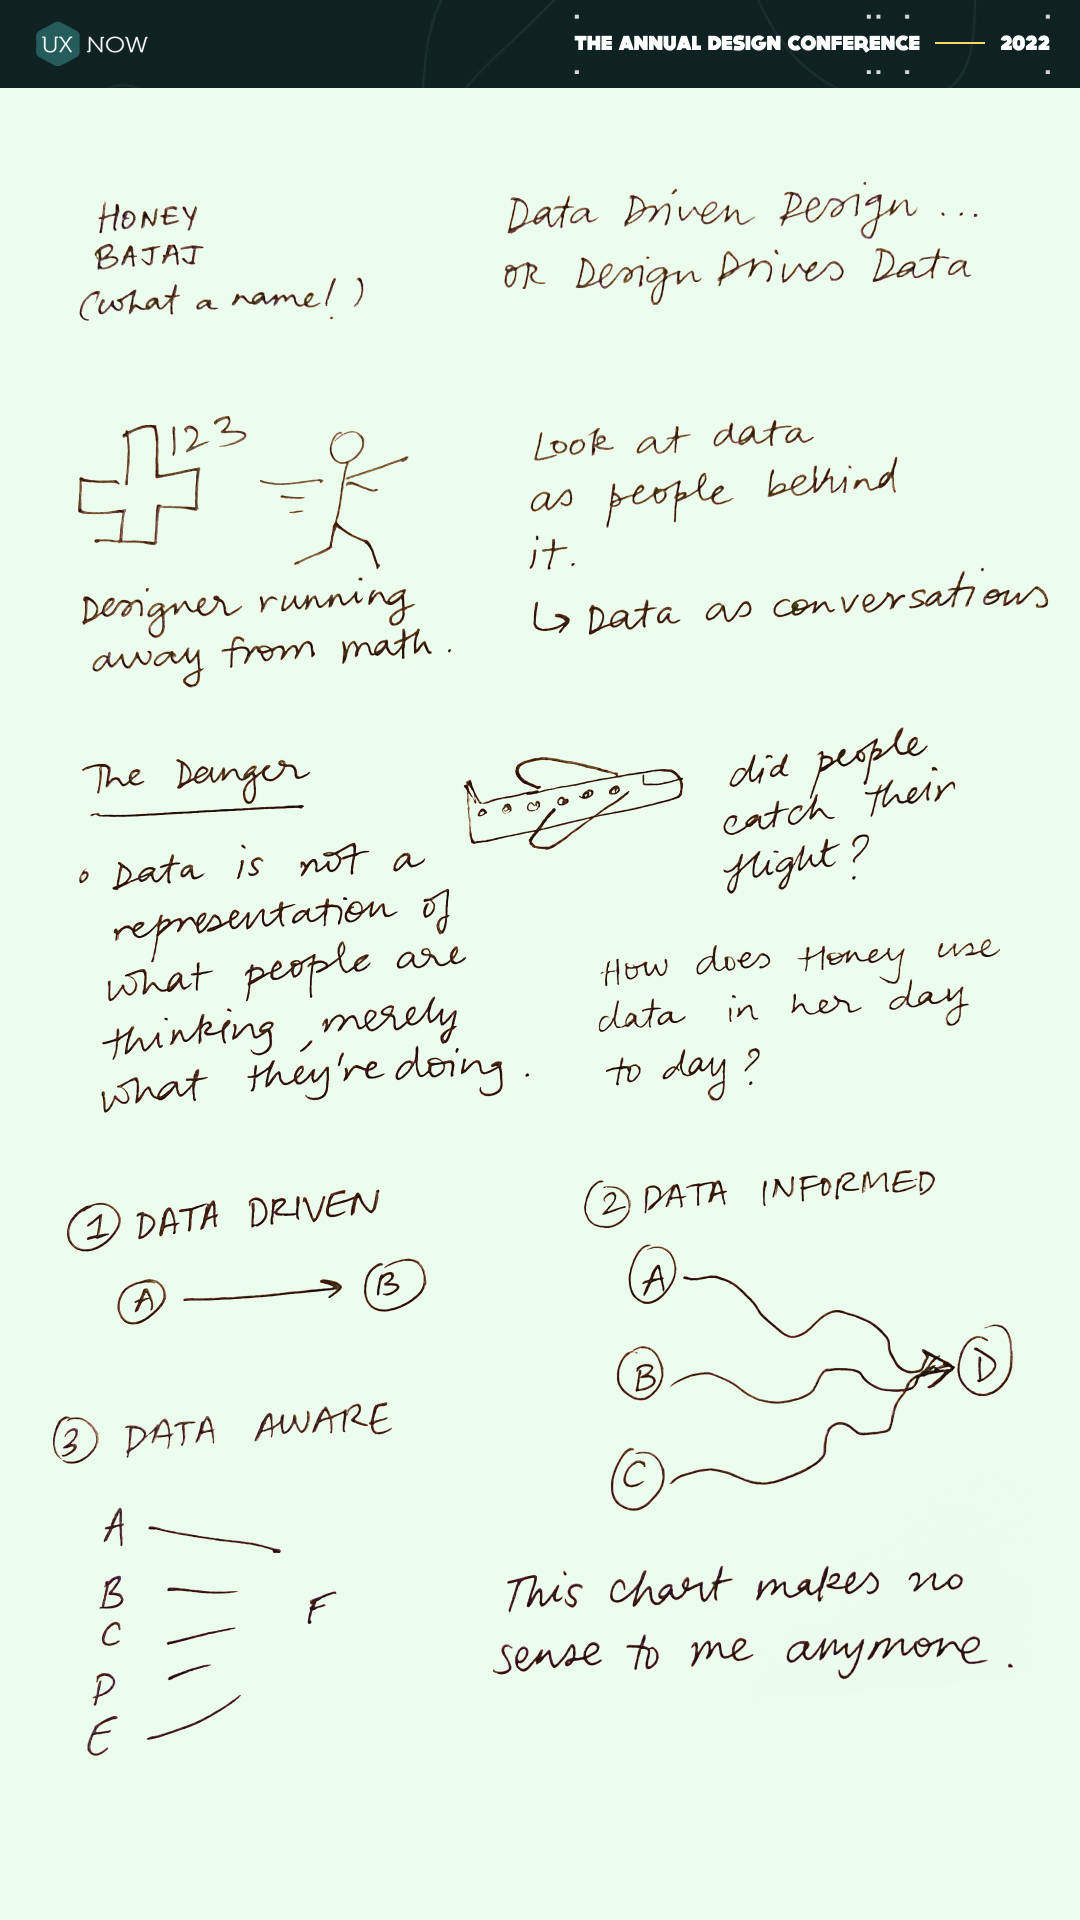 UX NOW
THE ANNUAL DESIGN CONFERENCE 2022
HONEY
BAJAJ
(what a name!)
Data Driven Design...
OR Design Drives Data
123
Designer running
away from math.
Look at data
as people behind
it.
↳ Data as conversations
The Danger
did people
catch their
flight?
° Data is not a
representation of
what people are
thinking, merely
what they're doing.
How does Honey use
data in her day
to day?
① DATA DRIVEN
A → B
② DATA INFORMED
A
B
C
D
③ DATA AWARE
A
B
C
D
E
F
This chart makes no
sense to me anymore.